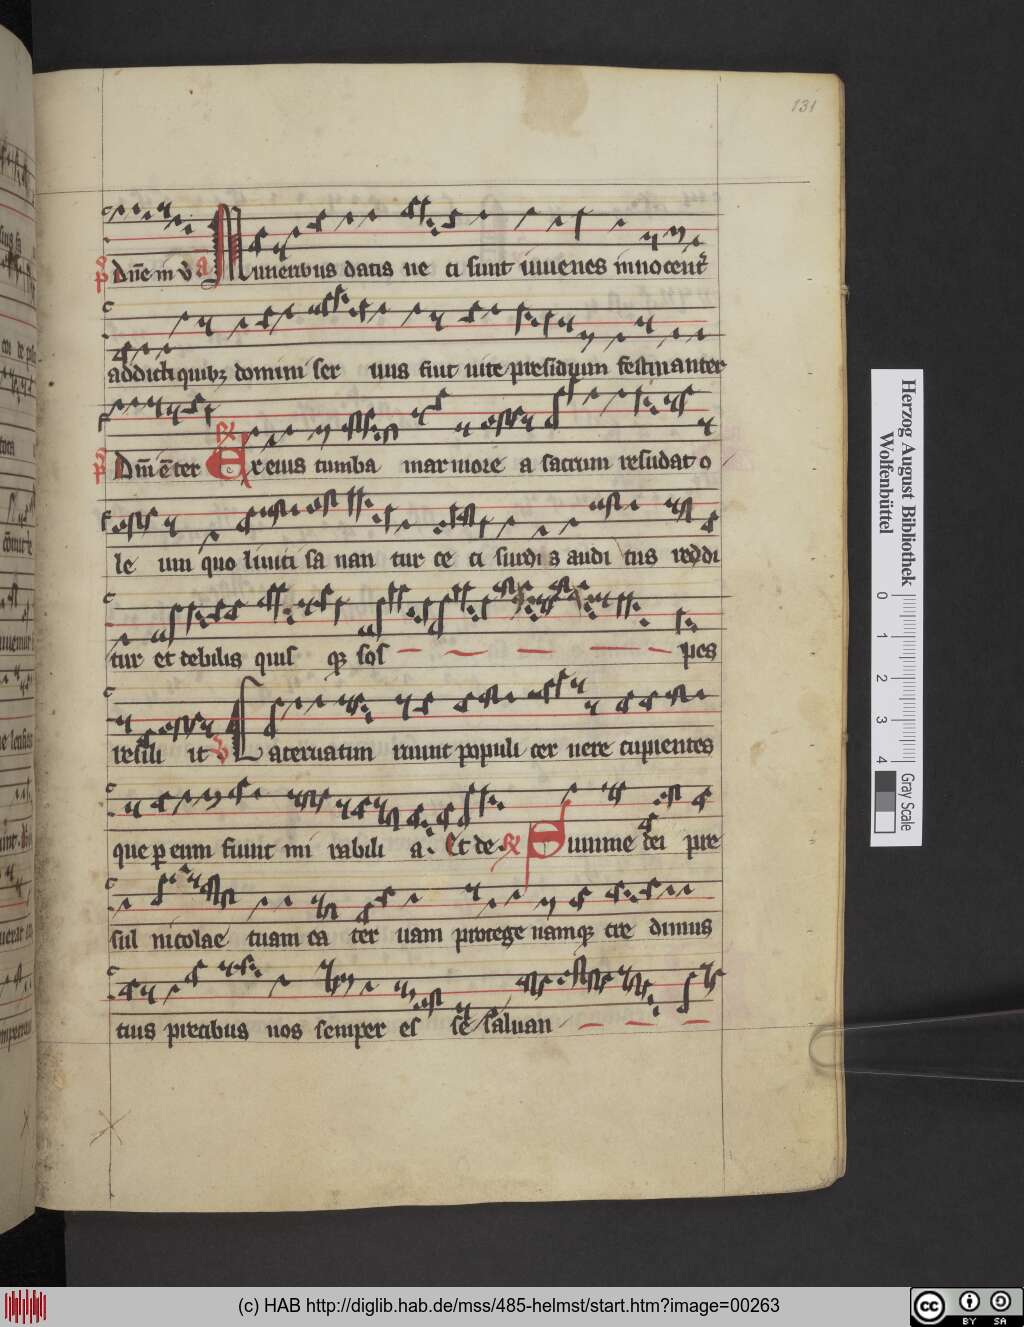 131
dñe in v a Muneribus datis ne ci sunt iuuenes innocent
addicti quibꝫ domini ser uus fuit uite presidium festinanter
Dm̄ ē ter Ex eius tumba marmore a sacrum resudat o
le um quo liniti sa nan tur ce ci surdi s audi tus reddi
tur et debilis quis qꝫ sos pes
resili it Cateruatim ruunt populi cer nere cupientes
que p eum fiunt mi rabili a. Et de. Summe dei pre
sul nicolae tuam ca ter uam protege namqꝫ cre dimus
tuis precibus nos semper es se saluan
Herzog August Bibliothek
Wolfenbüttel
0 1 2 3 4
Gray Scale
(c) HAB http://diglib.hab.de/mss/485-helmst/start.htm?image=00263
cc BY SA